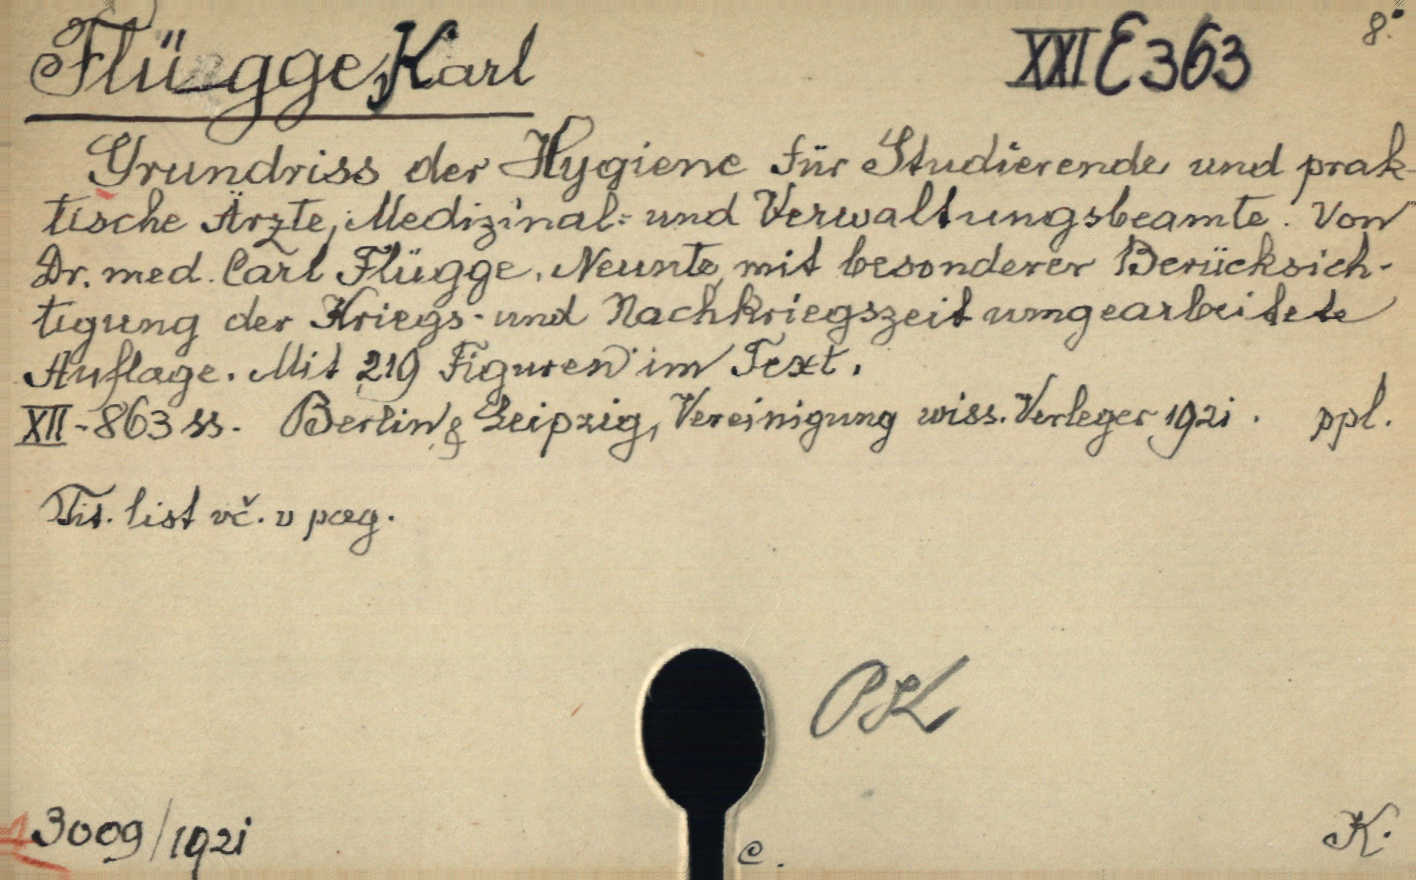 Flügge, Karl XXI E 363 8°.
Grundriss der Hygiene für Studierende und prak-
tische Ärzte, Medizinal- und Verwaltungsbeamte. Von
Dr. med. Carl Flügge. Neunte, mit besonderer Berücksich-
tigung der Kriegs- und Nachkriegszeit umgearbeitete
Auflage. Mit 219 Figuren im Text.
XII-863 ss. Berlin & Leipzig, Vereinigung wiss. Verleger 1921. ppl.
Tit. list vč. v pag.
PK
3009/1921 c. K.